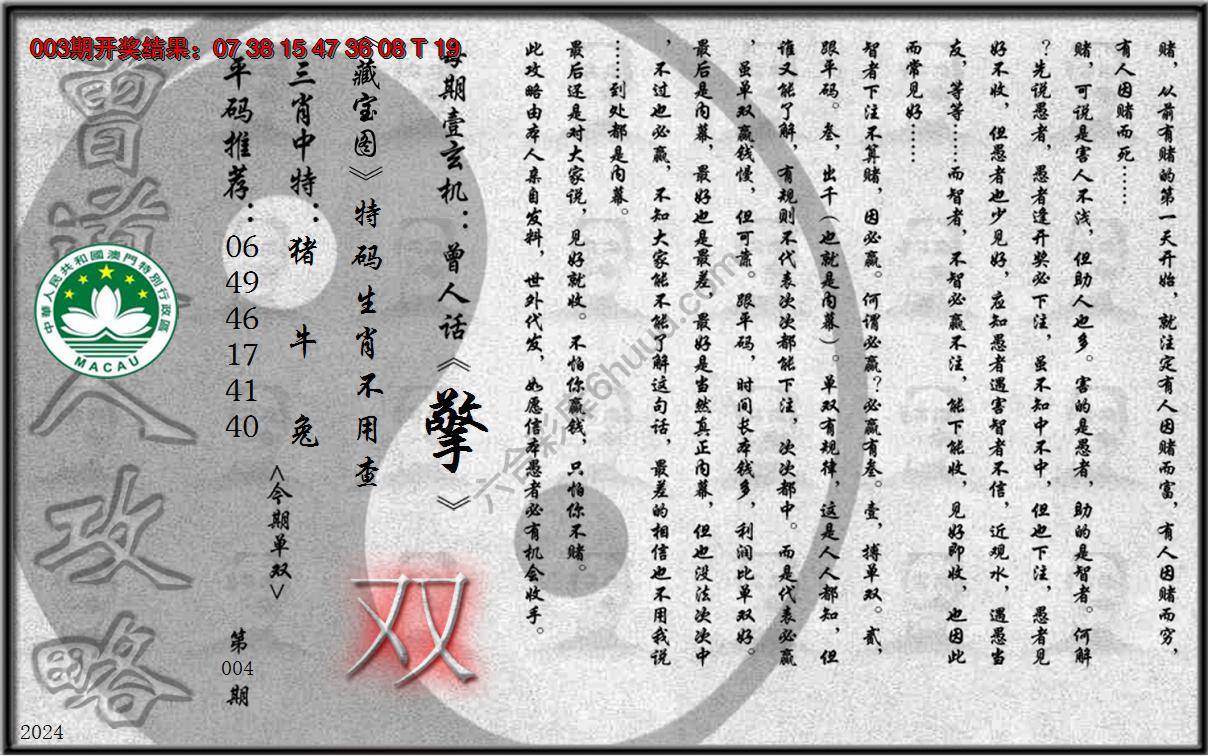 003期开奖结果：07 38 15 47 36 08 T 19
赌，从前有赌的第一天开始，就注定有人因赌而富，有人因赌而穷，
有人因赌而死……
赌，可说是害人不浅，但助人也多。害的是愚者，助的是智者。何解
？先说愚者，愚者逢开奖必下注，虽不知中不中，但也下注，愚者见
好不收，但愚者也少见好，应知愚者遇害智者不信，近观水，遇愚当
友，等等……而智者，不智必赢不注，能下能收，见好即收，也因此
而常见好……
智者下注不算赌，因必赢。何谓必赢？必赢有叁。壹，搏单双。贰，
跟平码。叁，出千（也就是内幕）。单双有规律，这是人人都知，但
谁又能了解，有规则不代表次次都能下注，次次都中。而是代表必赢
，虽单双赢钱慢，但可靠。跟平码，时间长本钱多，利润比单双好。
最后是内幕，最好也是最差，最好是当然真正内幕，但也没法次次中
，不过也必赢，不知大家能不能了解这句话，最差的相信也不用我说
……到处都是内幕。
最后还是对大家说，见好就收。不怕你赢钱，只怕你不赌。
此攻略由本人亲自发料，世外代发，如愿信本愚者必有机会收手。
每期壹玄机：曾人话《擎》
《藏宝图》特码生肖不用查
三肖中特：猪 牛 兔
<今期单双>
双
平码推荐：
06
49
46
17
41
40
第
004
期
曾道人攻略
中華人民共和國澳門特別行政區
MACAU
2024